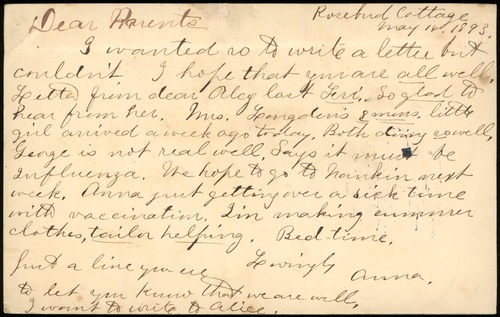 Rosebud Cottage
May 14, 1893.
Dear Parents
I wanted so to write a letter but
couldn't. I hope that you are all well.
from dear last So glad to
hear from her. Mrs. little
girl arrived a week ago today. Both doing so well.
George is not real well. Says it must be
Influenza. We hope to go to Nankin next
week. Anna just getting over a sick time
with vaccination. I'm making summer
clothes, tailor helping. Bed-time.
Just a line you see Lovingly
Anna.
to let you know that we are well,
I want to write to Alice.